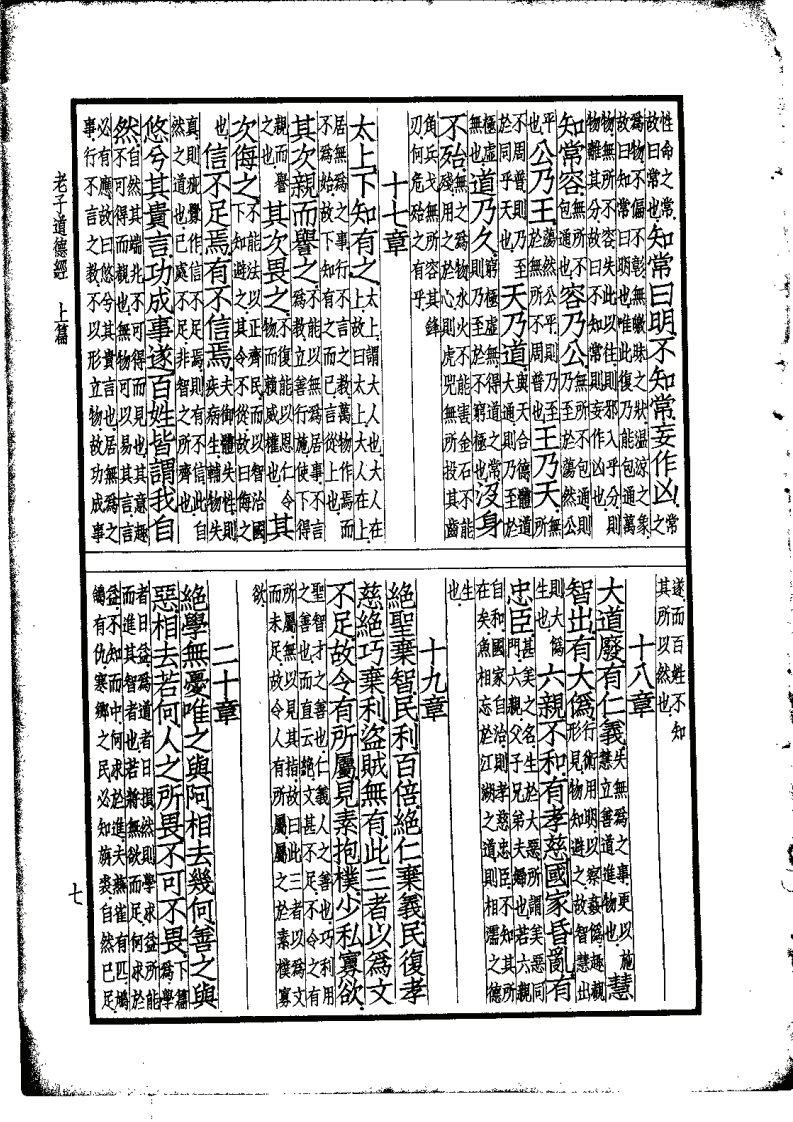 性命之常故曰常也知常曰明不知常妄作凶常之
為物不偏不彰無皦昧之狀溫涼之象故曰知常曰明也唯此復乃能包通萬
物無所不容失此以往則邪入乎分則物離其分故曰不知常則妄作凶也
知常容無所不包通也容乃公無所不包通則乃至於蕩然公
平也公乃王蕩然公平則乃至於無所不周普也王乃天無所
不周普則乃至於同乎天也天乃道與天合德體道大通則乃至於
極虛無也道乃久窮極虛無得道之常則乃至於不窮極也沒身
不殆無之為物水火不能害金石不能殘用之於心則虎兕無所投其齒
角兵戈無所容其鋒刃何危殆之有乎
十七章
太上下知有之太上謂大人也大人在上故曰太上大人在上
居無為之事行不言之教萬物作焉而不為始故下知有之而已言從上也
其次親而譽之不能以無為居事不言為教立善行施使下得
親而譽之也其次畏之不復能以恩仁令物而賴威權也其
次侮之不能法以正齊民而以智治國下知避之其令不從故曰侮之
也信不足焉有不信焉夫御體失性則疾病生輔物失
真則疵釁作信不足焉則有不信此自然之道也已處不足非智之所齊也
悠兮其貴言功成事遂百姓皆謂我自
然自然其端兆不可得而見也其意趣不可得而覩也無物可以易其言言
必有應故曰悠兮其貴言也居無為之事行不言之教不以形立物故功成事
老子道德經 上篇
遂而百姓不知其所以然也
十八章
大道廢有仁義失無為之事更以施慧立善道進物也慧
智出有大偽行術用明以察姦偽趣覩形見物知避之故智慧出
則大偽生也六親不和有孝慈國家昏亂有
忠臣甚美之名生於大惡所謂美惡同門六親父子兄弟夫婦也若六親
自和國家自治則孝慈忠臣不知其所在矣魚相忘於江湖之道則相濡之德
生也
十九章
絕聖棄智民利百倍絕仁棄義民復孝
慈絕巧棄利盜賊無有此三者以為文
不足故令有所屬見素抱樸少私寡欲
聖智才之善也仁義人之善也巧利用之善也而直云絕文甚不足不令之有
所屬無以見其指故曰此三者以為文而未足故令人有所屬屬之於素樸寡
欲
二十章
絕學無憂唯之與阿相去幾何善之與
惡相去若何人之所畏不可不畏下篇為學
者日益為道者日損然則學求益所能而進其智者也若將無欲而足何求於
益不知而中何求於進夫燕雀有匹鳩鴿有仇寒鄉之民必知旃裘自然已足
七